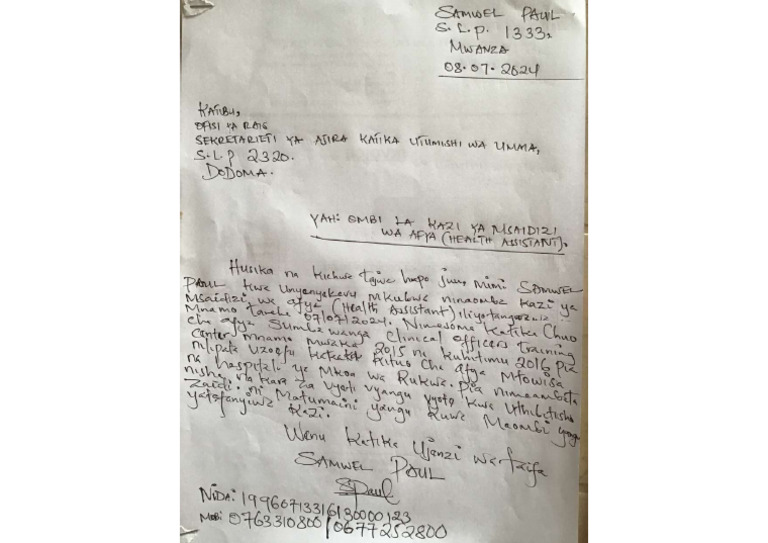 SAMWEL PAUL
S.L.P. 1333,
MWANZA
08.07.2024
KATIBU,
OFISI YA RAIS
SEKRETARIETI YA AJIRA KATIKA UTUMISHI WA UMMA,
S.L.P 2320.
DODOMA.
YAH: OMBI LA KAZI YA MSAIDIZI
WA AFYA (HEALTH ASSISTANT).
Husika na kichwa tajwa hapo juu, mimi SAMWEL
PAUL kwa unyenyekevu mkubwa ninaomba kazi ya
Msaidizi wa afya (Health Assistant) iliyotangazwa
Mnamo tarehe 07/07/2024. Nimesoma Katika Chuo
cha afya Sumbawanga Clinical officers Training
Center mnamo mwaka 2015 na kuhitimu 2016 pia
nilipata uzoefu katika Kituo cha afya Mtowisa
na hospitali ya Mkoa wa Rukwa. Pia nimeambata
nisha na kara za vyeti vyangu vyote kwa Uthibitisho
zaidi. ni Matumaini yangu kuwa Maombi yangu
yatafanyiwa kazi.
Wenu katika Ujenzi wa taifa
SAMWEL PAUL
SPaul
NIDA: 19960713316130000123
MOB: 0763310800/0677252800